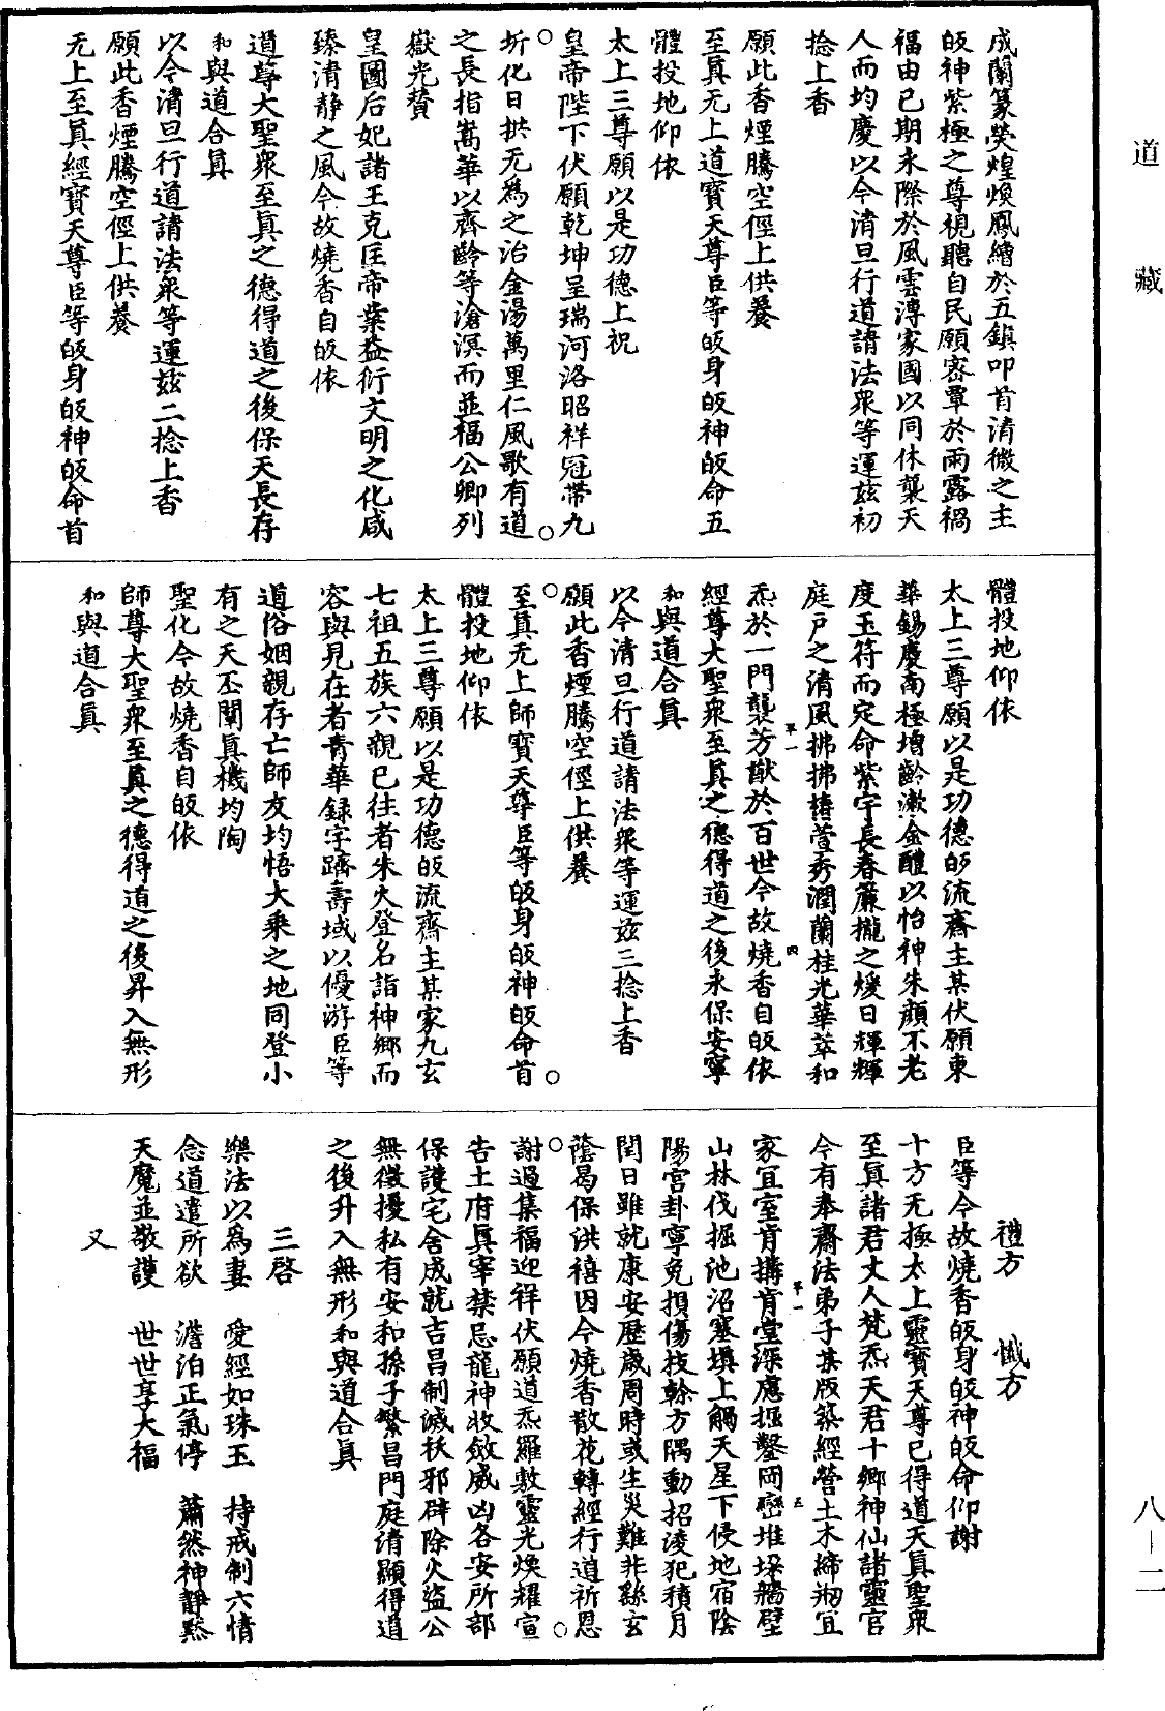 道藏
八－二
成蘭篆熒煌煥鳳繪於五鎮叩首清微之主
皈神紫極之尊視聽自民願密覃於雨露禍
福由己期永際於風雲溥家國以同休襲天
人而均慶以今清旦行道請法衆等運茲初
捻上香
願此香煙騰空徑上供養
至真无上道寶天尊臣等皈身皈神皈命五
體投地仰依
太上三尊願以是功德上祝
皇帝陛下伏願乾坤呈瑞河洛昭祥冠帶九
圻化日拱无為之治金湯萬里仁風歌有道
之長指嵩華以齊齡等滄溟而並福公卿列
嶽光贊
皇圖后妃諸王克匡帝業益衍文明之化咸
臻清靜之風今故燒香自皈依
道尊大聖衆至真之德得道之後保天長存
和與道合真
以今清旦行道請法衆等運茲二捻上香
願此香煙騰空徑上供養
无上至真經寶天尊臣等皈身皈神皈命首
體投地仰依
太上三尊願以是功德皈流齋主某伏願東
華錫慶南極增齡漱金醴以怡神朱顔不老
度玉符而定命紫宇長春簾櫳之煖日輝輝
庭戶之清風拂拂椿萱秀潤蘭桂光華萃和
炁於一門襲芳猷於百世今故燒香自皈依
經尊大聖衆至真之德得道之後永保安寧
和與道合真
以今清旦行道請法衆等運茲三捻上香
願此香煙騰空徑上供養
至真无上師寶天尊臣等皈身皈神皈命首
體投地仰依
太上三尊願以是功德皈流齋主某家九玄
七祖五族六親已往者朱火登名詣神鄉而
容與見在者青華録字躋壽域以優游臣等
道俗姻親存亡師友均悟大乘之地同登小
有之天丕闡真機均陶
聖化今故燒香自皈依
師尊大聖衆至真之德得道之後昇入無形
和與道合真
禮方　懺方
臣等今故燒香皈身皈神皈命仰謝
十方无極太上靈寶天尊已得道天真聖衆
至真諸君丈人梵炁天君十鄉神仙諸靈官
今有奉齋法弟子某版築經營土木締剏宜
家宜室肯搆肯堂深慮掘鑿岡巒堆垛牆壁
山林伐掘池沼塞塡上觸天星下侵地宿陰
陽宮卦寧免損傷技榦方隅動招淩犯積月
閏日雖就康安歷歲周時或生災難非繇玄
蔭曷保洪禧因今燒香散花轉經行道祈恩
謝過集福迎祥伏願道炁羅敷靈光煥耀宣
告土府真宰禁忌龍神收斂威凶各安所部
保護宅舍成就吉昌制滅扶邪辟除火盜公
無徵擾私有安和孫子繁昌門庭清顯得道
之後升入無形和與道合真
三啓
樂法以為妻　愛經如珠玉　持戒制六情
念道遣所欲　澹泊正氣停　蕭然神靜默
天魔並敬護　世世享大福
又
平一
四
平一
五